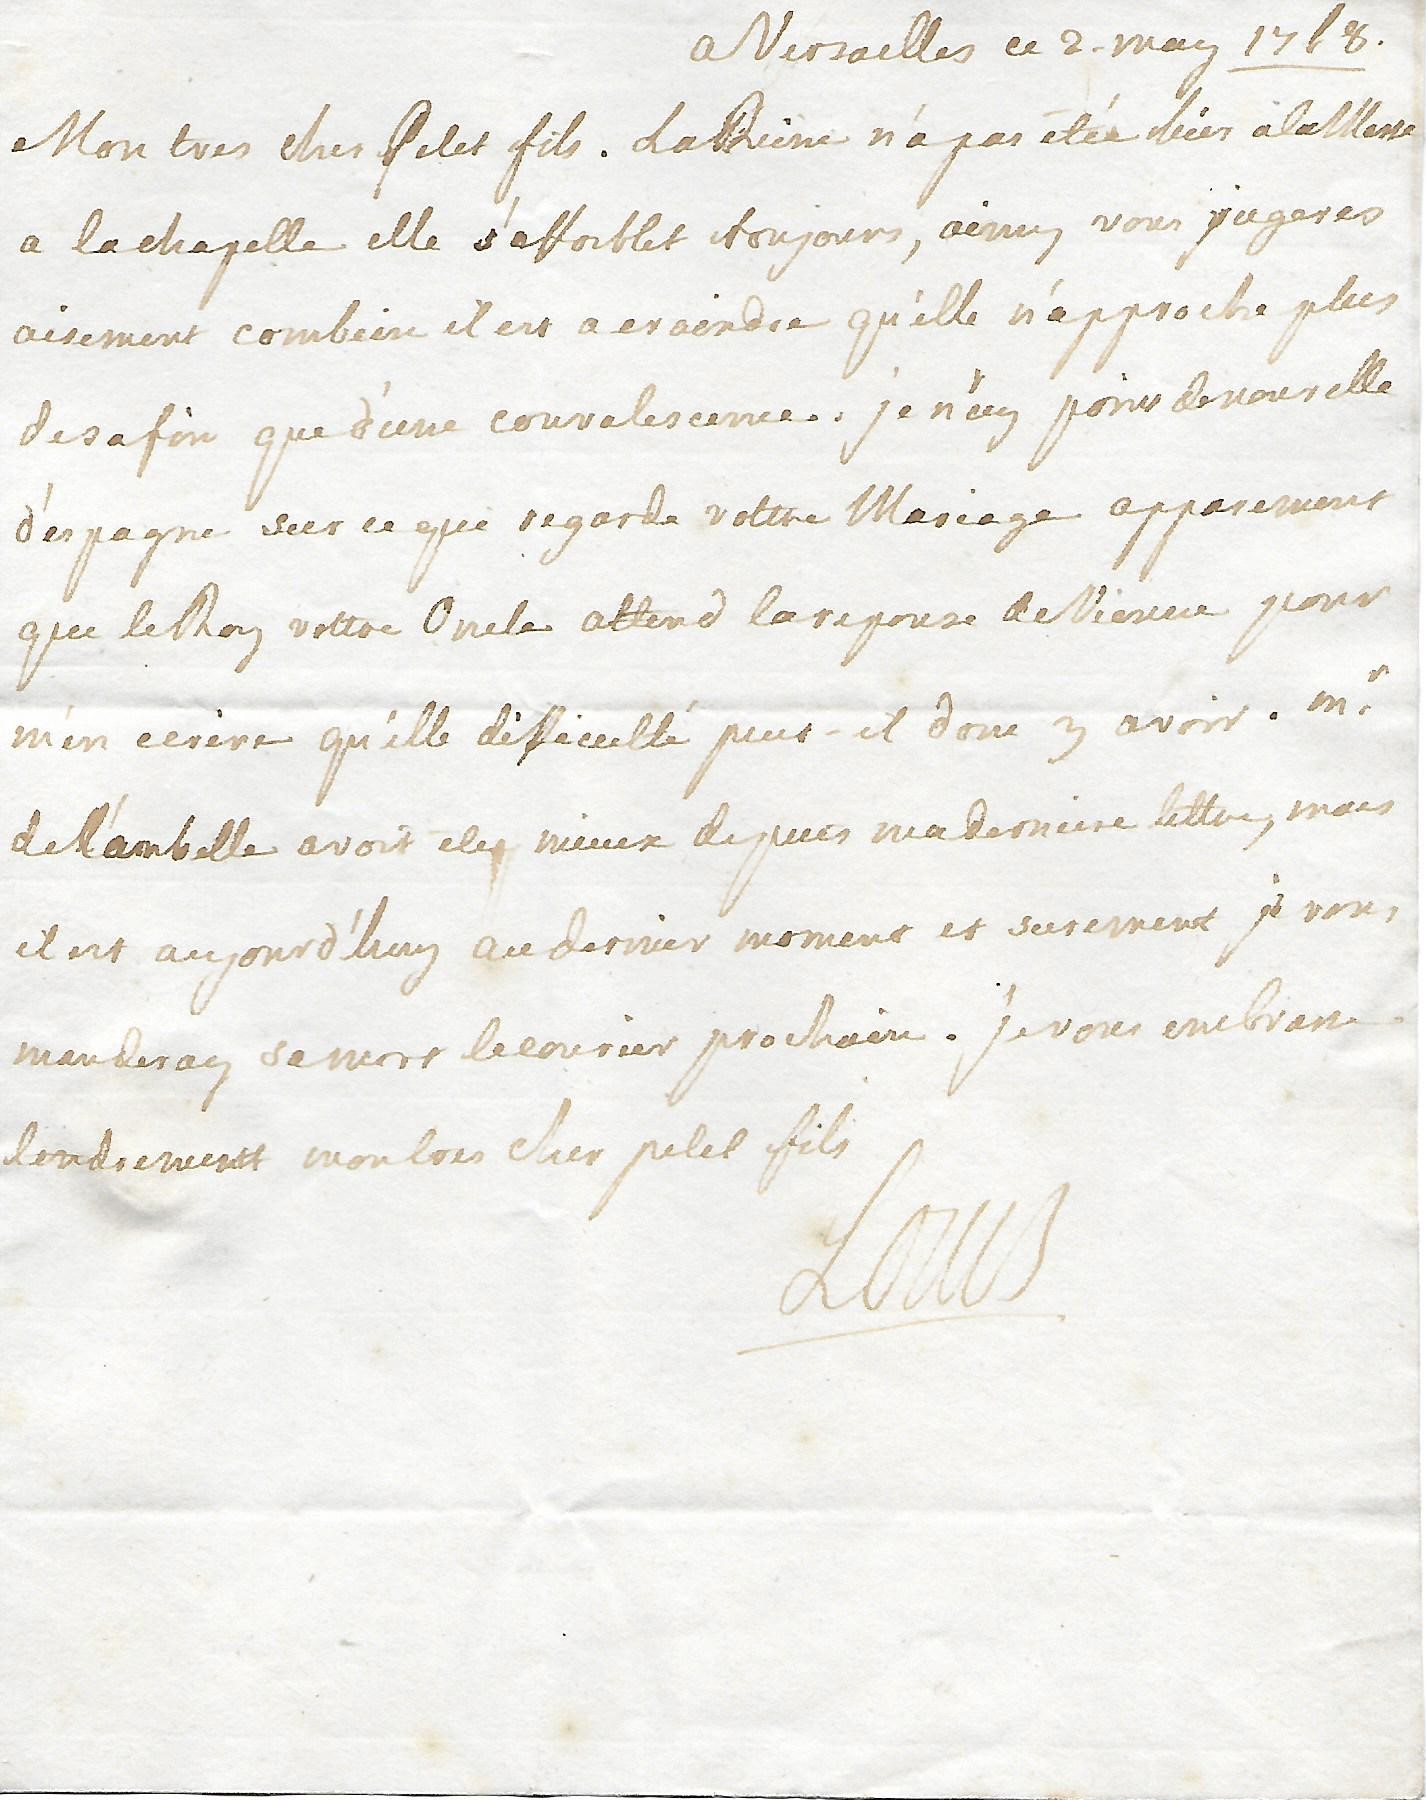 a Versaelles ce 2. may 1768.
Mon tres cher Petit fils. La Reine n'a pas étée hier a la Messe
a la chapelle elle s'affoiblit toujours, ainsy vous jugerés
aisement combein il est a craindre qu'elle n'approche plus
de sa fin que d'une convalescence. je n'ay point de nouvelle
d'espagne sur ce qui regarde vottre Mariage apparement
que le Roy vottre Oncle attend la reponse de Vienne pour
m'en ecrire qu'elle difficulté peut-il donc y avoir. Mr
de Lambelle avoit eté mieux depuis ma derniere lettre, mais
il est aujourd'huy au dernier moment et surement je vous
manderay sa mort le courier prochain. je vous embrasse
tendrement mon tres cher petit fils
Louis